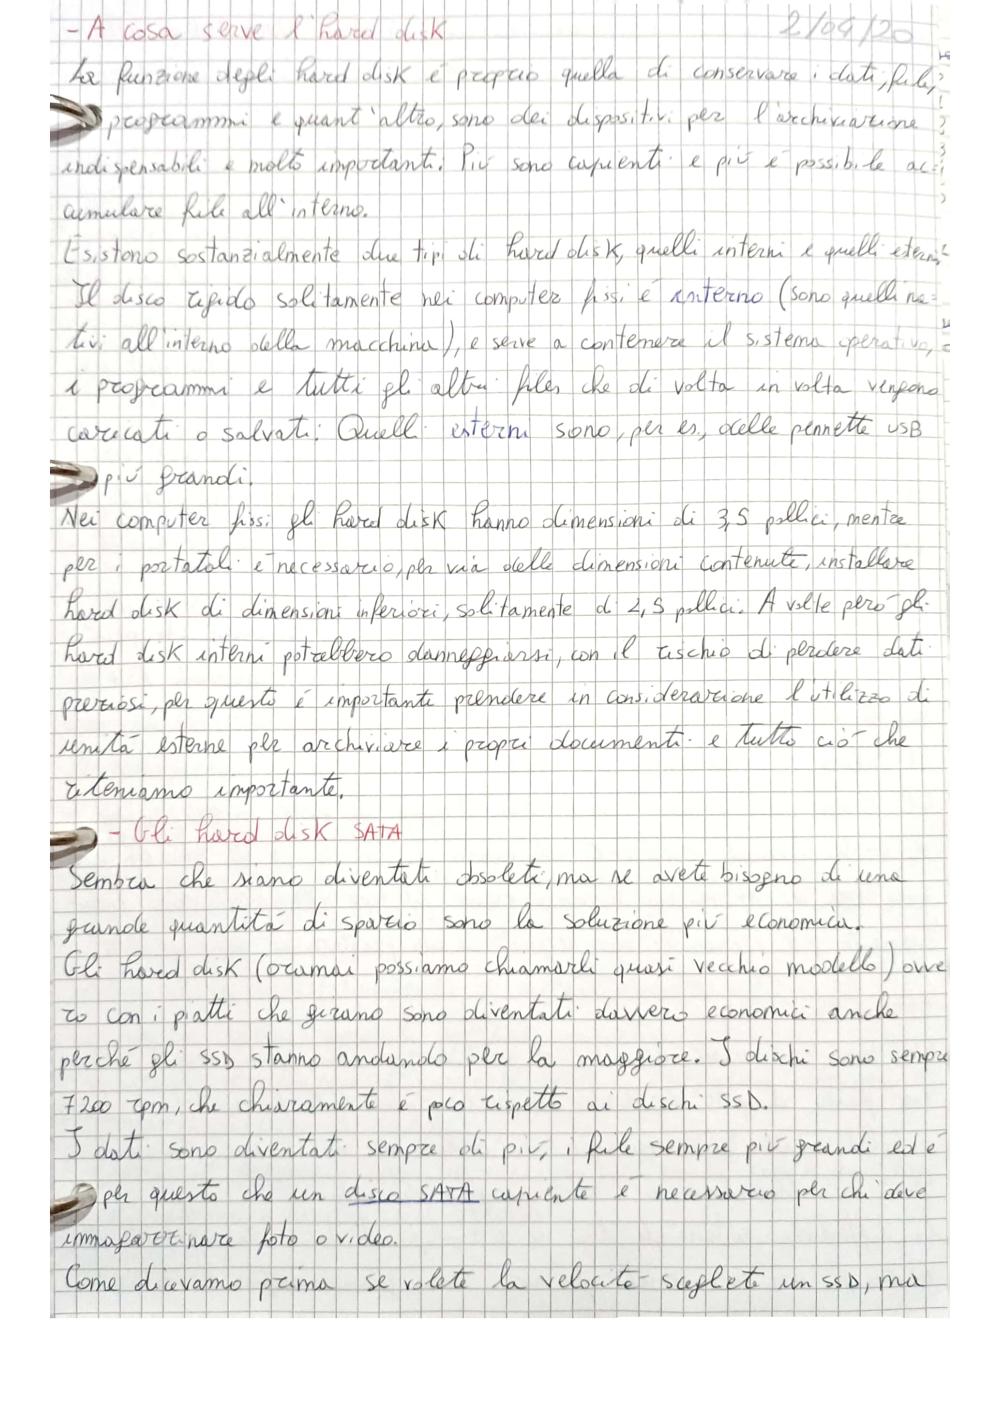 - A cosa serve l'hard disk
2/04/20
La funzione degli hard disk è proprio quella di conservare i dati, file,
programmi e quant'altro, sono dei dispositivi per l'archiviazione
indispensabili e molto importanti. Più sono capienti e più è possibile ac=
cumulare file all'interno.
Esistono sostanzialmente due tipi di hard disk, quelli interni e quelli eterni
Il disco rigido solitamente nei computer fissi è interno (sono quelli na=
tivi all'interno della macchina), e serve a contenere il sistema operativo,
i programmi e tutti gli altri files che di volta in volta vengono
caricati o salvati. Quelli esterni sono, per es., delle pennette USB
più grandi.
Nei computer fissi gli hard disk hanno dimensioni di 3,5 pollici, mentre
per i portatoli è necessario, per via delle dimensioni contenute, installare
hard disk di dimensioni inferiori, solitamente di 2,5 pollici. A volte però gli
hard disk interni potrebbero danneggiarsi, con il rischio di perdere dati
preziosi, per questo è importante prendere in considerazione l'utilizzo di
unità esterne per archiviare i propri documenti e tutto ciò che
riteniamo importante.
- Gli hard disk SATA
Sembra che siano diventati obsoleti, ma se avete bisogno di una
grande quantità di spazio sono la soluzione più economica.
Gli hard disk (oramai possiamo chiamarli quasi vecchio modello) ovve
ro con i piatti che girano sono diventati davvero economici anche
perché gli SSD stanno andando per la maggiore. I dischi sono sempre
7200 rpm, che chiaramente è poco rispetto ai dischi SSD.
I dati sono diventati sempre di più, i file sempre più grandi ed è
per questo che un disco SATA capiente è necessario per chi deve
immagazzinare foto o video.
Come dicevamo prima se volete la velocità scegliete un SSD, ma